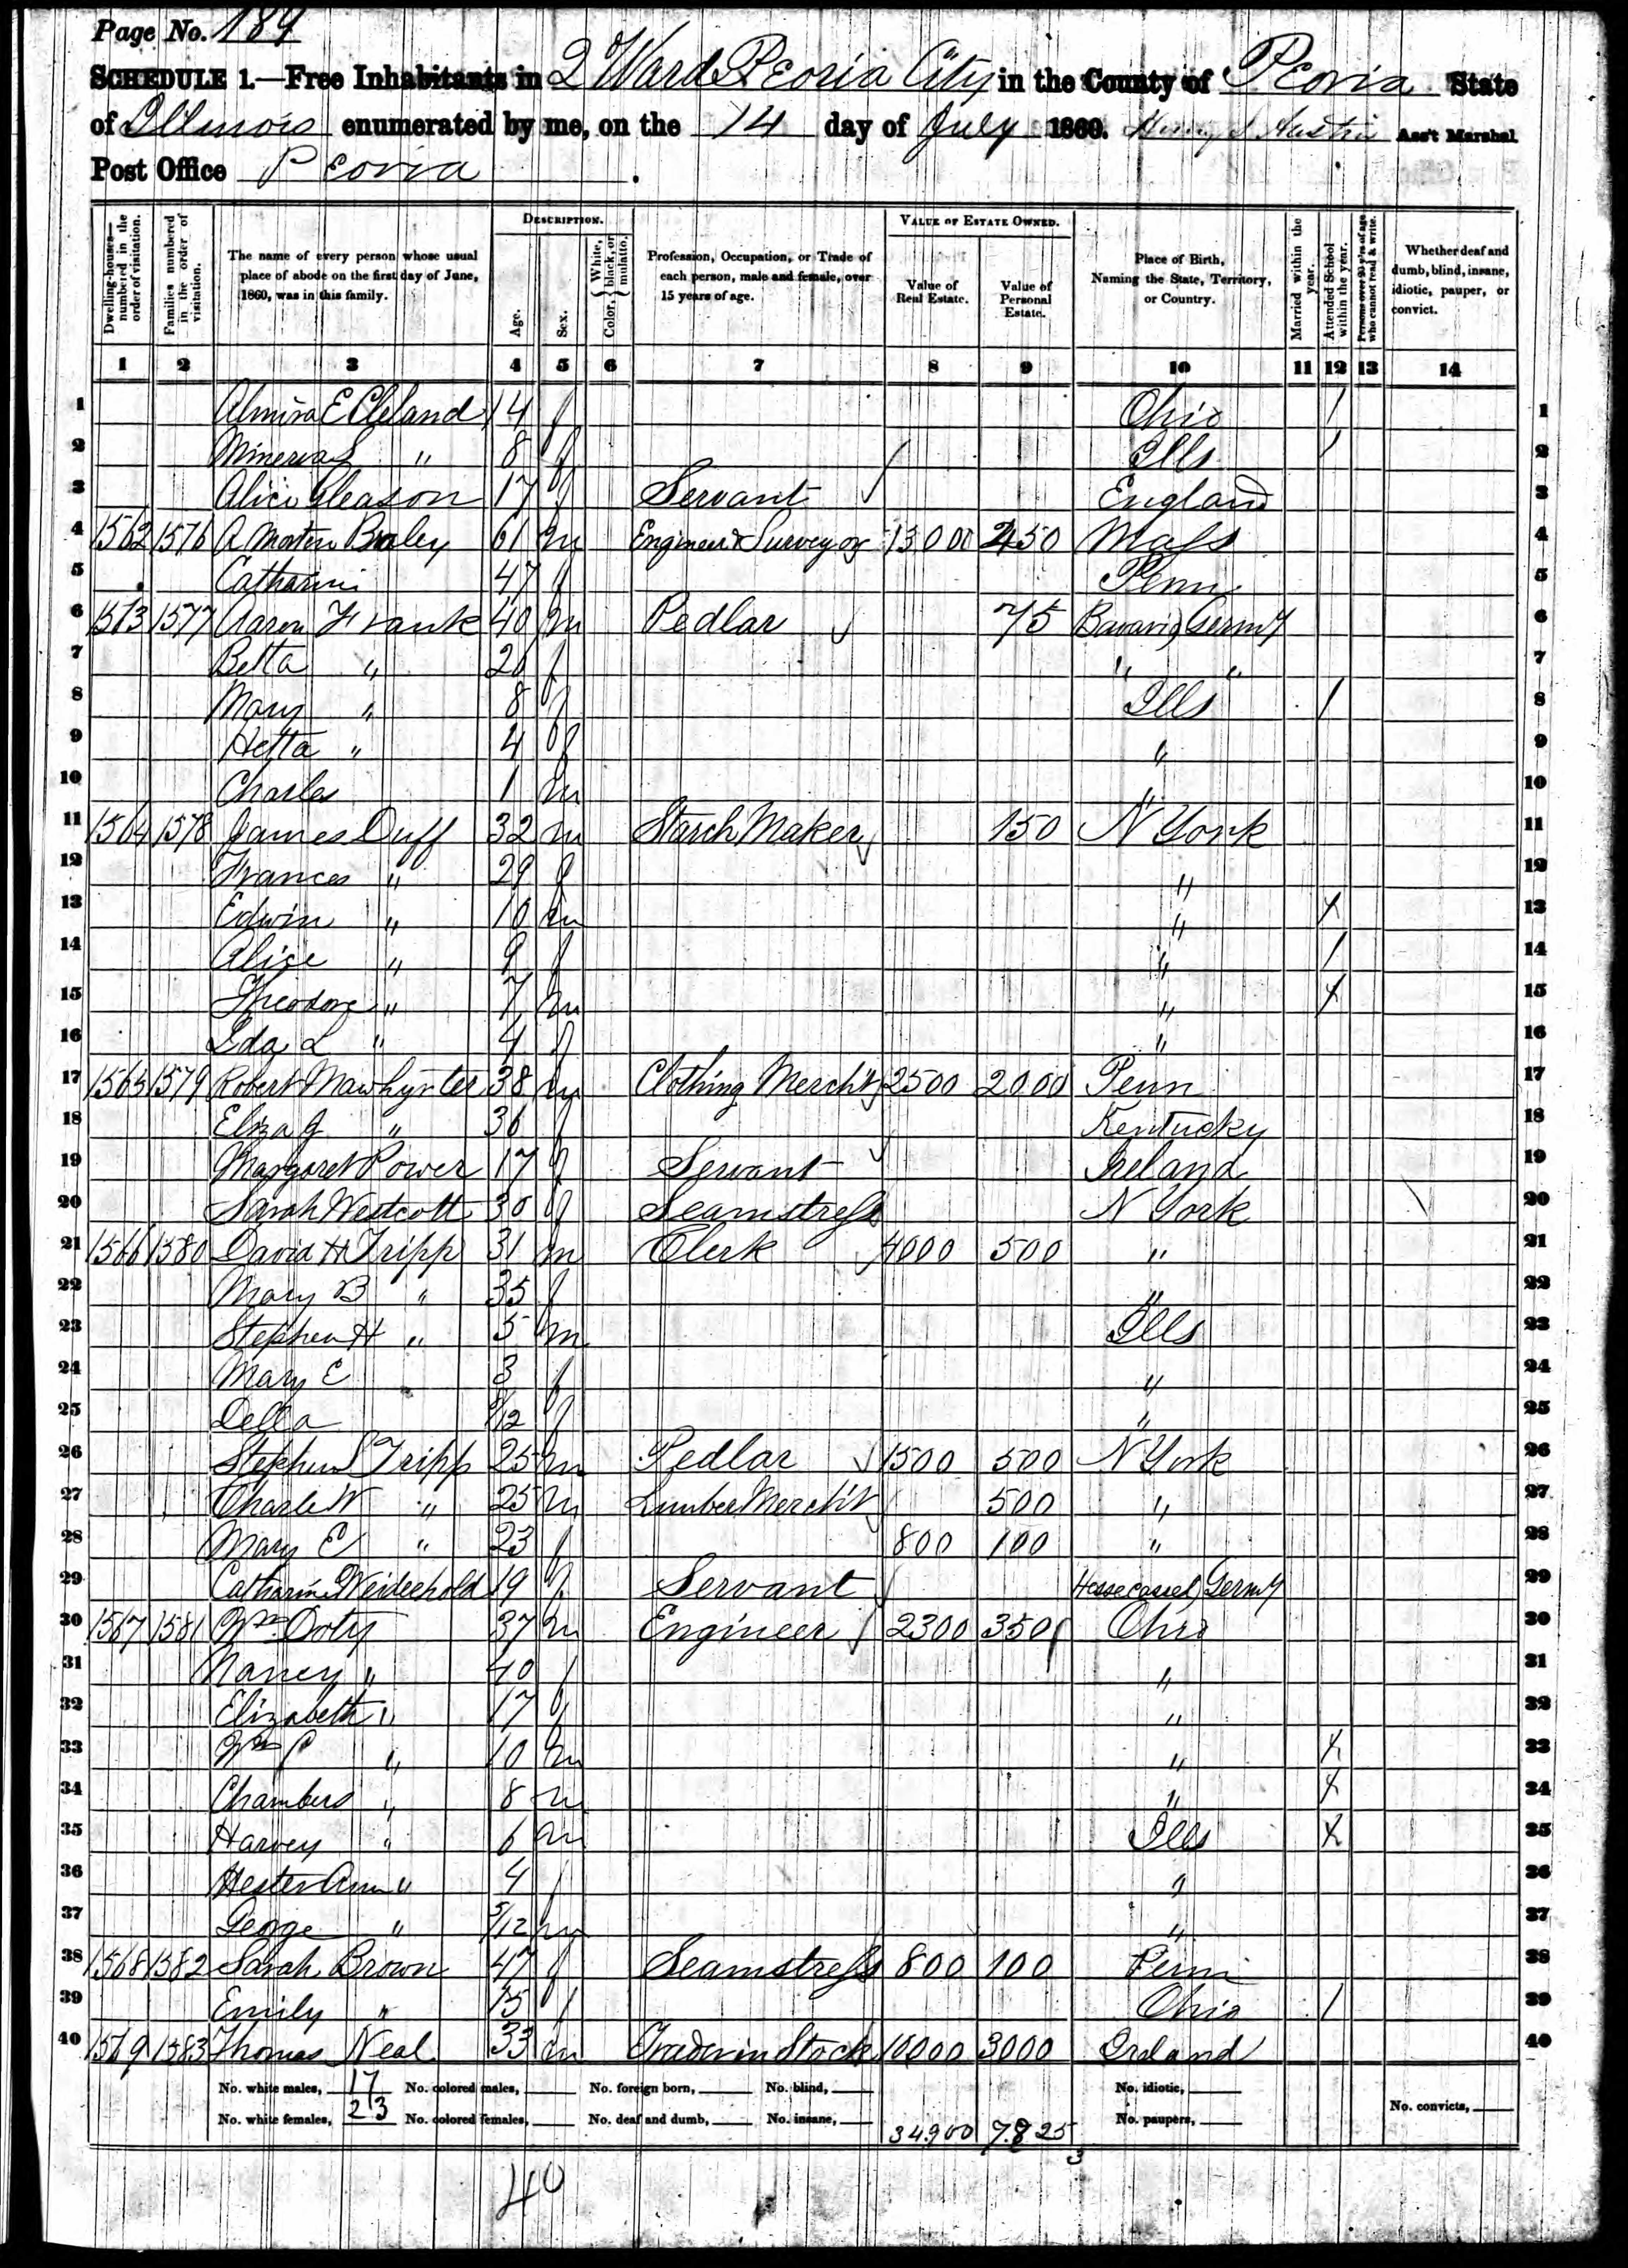 Page No. 189
SCHEDULE 1.—Free Inhabitants in 2 Ward Peoria City in the County of Peoria State
of Illinois enumerated by me, on the 14 day of July 1860. Henry S Austin Ass't Marshal
Post Office Peoria
DESCRIPTION. VALUE OF ESTATE OWNED.
Dwelling-houses—numbered in the order of visitation. Families numbered in the order of visitation. The name of every person whose usual place of abode on the first day of June, 1860, was in this family. Age. Sex. Color, White, black, or mulatto. Profession, Occupation, or Trade of each person, male and female, over 15 years of age. Value of Real Estate. Value of Personal Estate. Place of Birth, Naming the State, Territory, or Country. Married within the year. Attended School within the year. Persons over 20 y'rs of age who cannot read & write. Whether deaf and dumb, blind, insane, idiotic, pauper, or convict.
1 2 3 4 5 6 7 8 9 10 11 12 13 14
1 Almira E Cleland 14 f Ohio / 1
2 Minerva S " 8 f Ills / 2
3 Alice Gleason 17 f Servant England 3
4 1562 1576 A Morten Baley 61 m Engineer & Surveyor 13000 2450 Mass 4
5 Catharine 47 f Penn 5
6 1563 1577 Aaron Frank 40 m Pedlar 75 Bavaria Germy 6
7 Betta " 26 f " " 7
8 Mary " 8 f Ills / 8
9 Hetta " 4 f " 9
10 Charles 1 m " 10
11 1564 1578 James Duff 32 m Starch Maker 150 N York 11
12 Frances " 29 f " 12
13 Edwin " 10 m " X 13
14 Alice " 9 f " / 14
15 Theodore " 7 m " X 15
16 Ida L " 4 f " 16
17 1565 1579 Robert Mawhynter 38 m Clothing Mercht 2500 2000 Penn 17
18 Eliza J " 36 f Kentucky 18
19 Margaret Power 17 f Servant Ireland 19
20 Sarah Westcott 30 f Seamstress N York 20
21 1566 1580 David H Tripp 31 m Clerk 4000 500 " 21
22 Mary B " 35 f " 22
23 Stephen H " 5 m Ills 23
24 Mary E 3 f " 24
25 Della 8/12 f " 25
26 Stephen S Tripp 25 m Pedlar 1500 500 N York 26
27 Charle W " 25 m Lumber Mercht 500 " 27
28 Mary E " 23 f 800 100 " 28
29 Catharine Weideehold 19 f Servant Hesse Cassel Germy 29
30 1567 1581 Wm Doty 37 m Engineer 2300 350 Ohio 30
31 Nancy " 40 f " 31
32 Elizabeth " 17 f " 32
33 Wm C " 10 m " X 33
34 Chambers " 8 m " X 34
35 Harvey " 6 m Ills X 35
36 Hester Ann " 4 f " 36
37 George " 5/12 m " 37
38 1568 1582 Sarah Brown 47 f Seamstress 800 100 Penn 38
39 Emily " 15 f Ohio / 39
40 1569 1583 Thomas Neal 33 m Trader in Stock 10000 3000 Ireland 40
No. white males, 17 No. colored males, No. foreign born, No. blind, No. idiotic,
No. white females, 23 No. colored females, No. deaf and dumb, No. insane, 34900 7825 No. paupers, No. convicts,
3
40